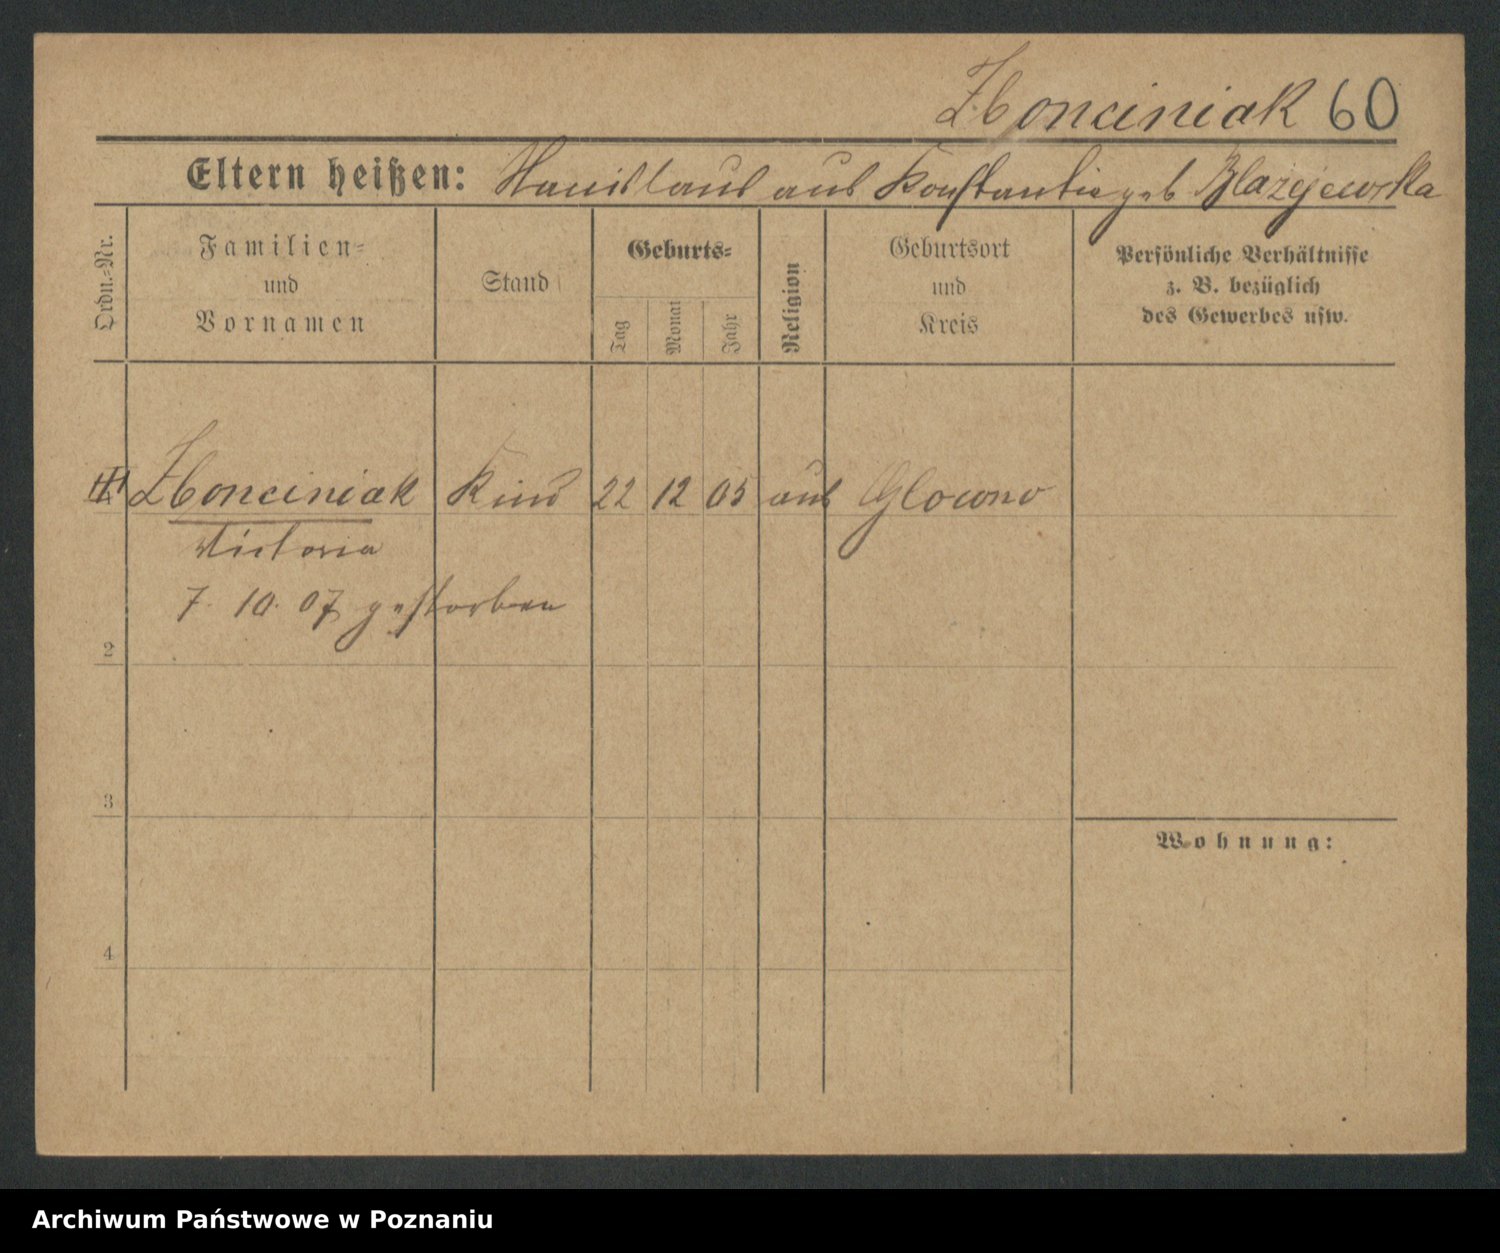 Zbonciniak 60
Eltern heißen: Stanislaus und Konstantie geb Blazejewska
Ordn.=Nr.
Familien=
und
Vornamen
Stand
Geburts=
Tag
Monat
Jahr
Religion
Geburtsort
und
Kreis
Persönliche Verhältnisse
z. B. bezüglich
des Gewerbes usw.
Zbonciniak Kind 22 12 05 Glowno
Victoria
7. 10. 07 gestorben
2
3
Wohnung:
4
Archiwum Państwowe w Poznaniu